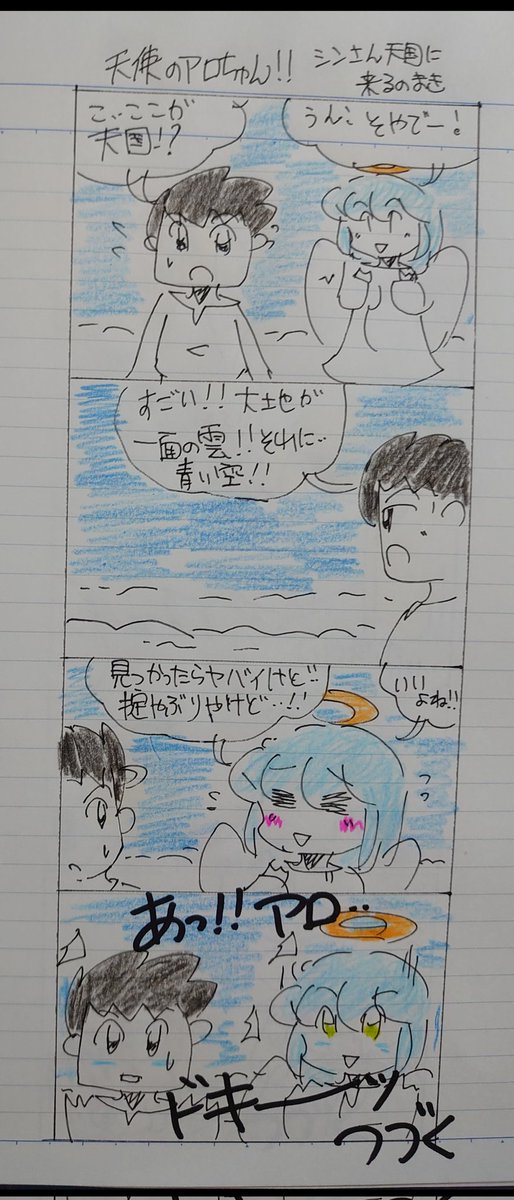 天使のアロちゃん!!
シンさん天国に
来るのまき
うん! そやでー!
こ…ここが
天国!?
すごい!! 大土也が
一面の雲!! それに…
青い空!!
いい
よね!!
見つかったらヤバイけど…
掟やぶりやけど…!!
あっ!! アロ…
ドキーッ
つづく